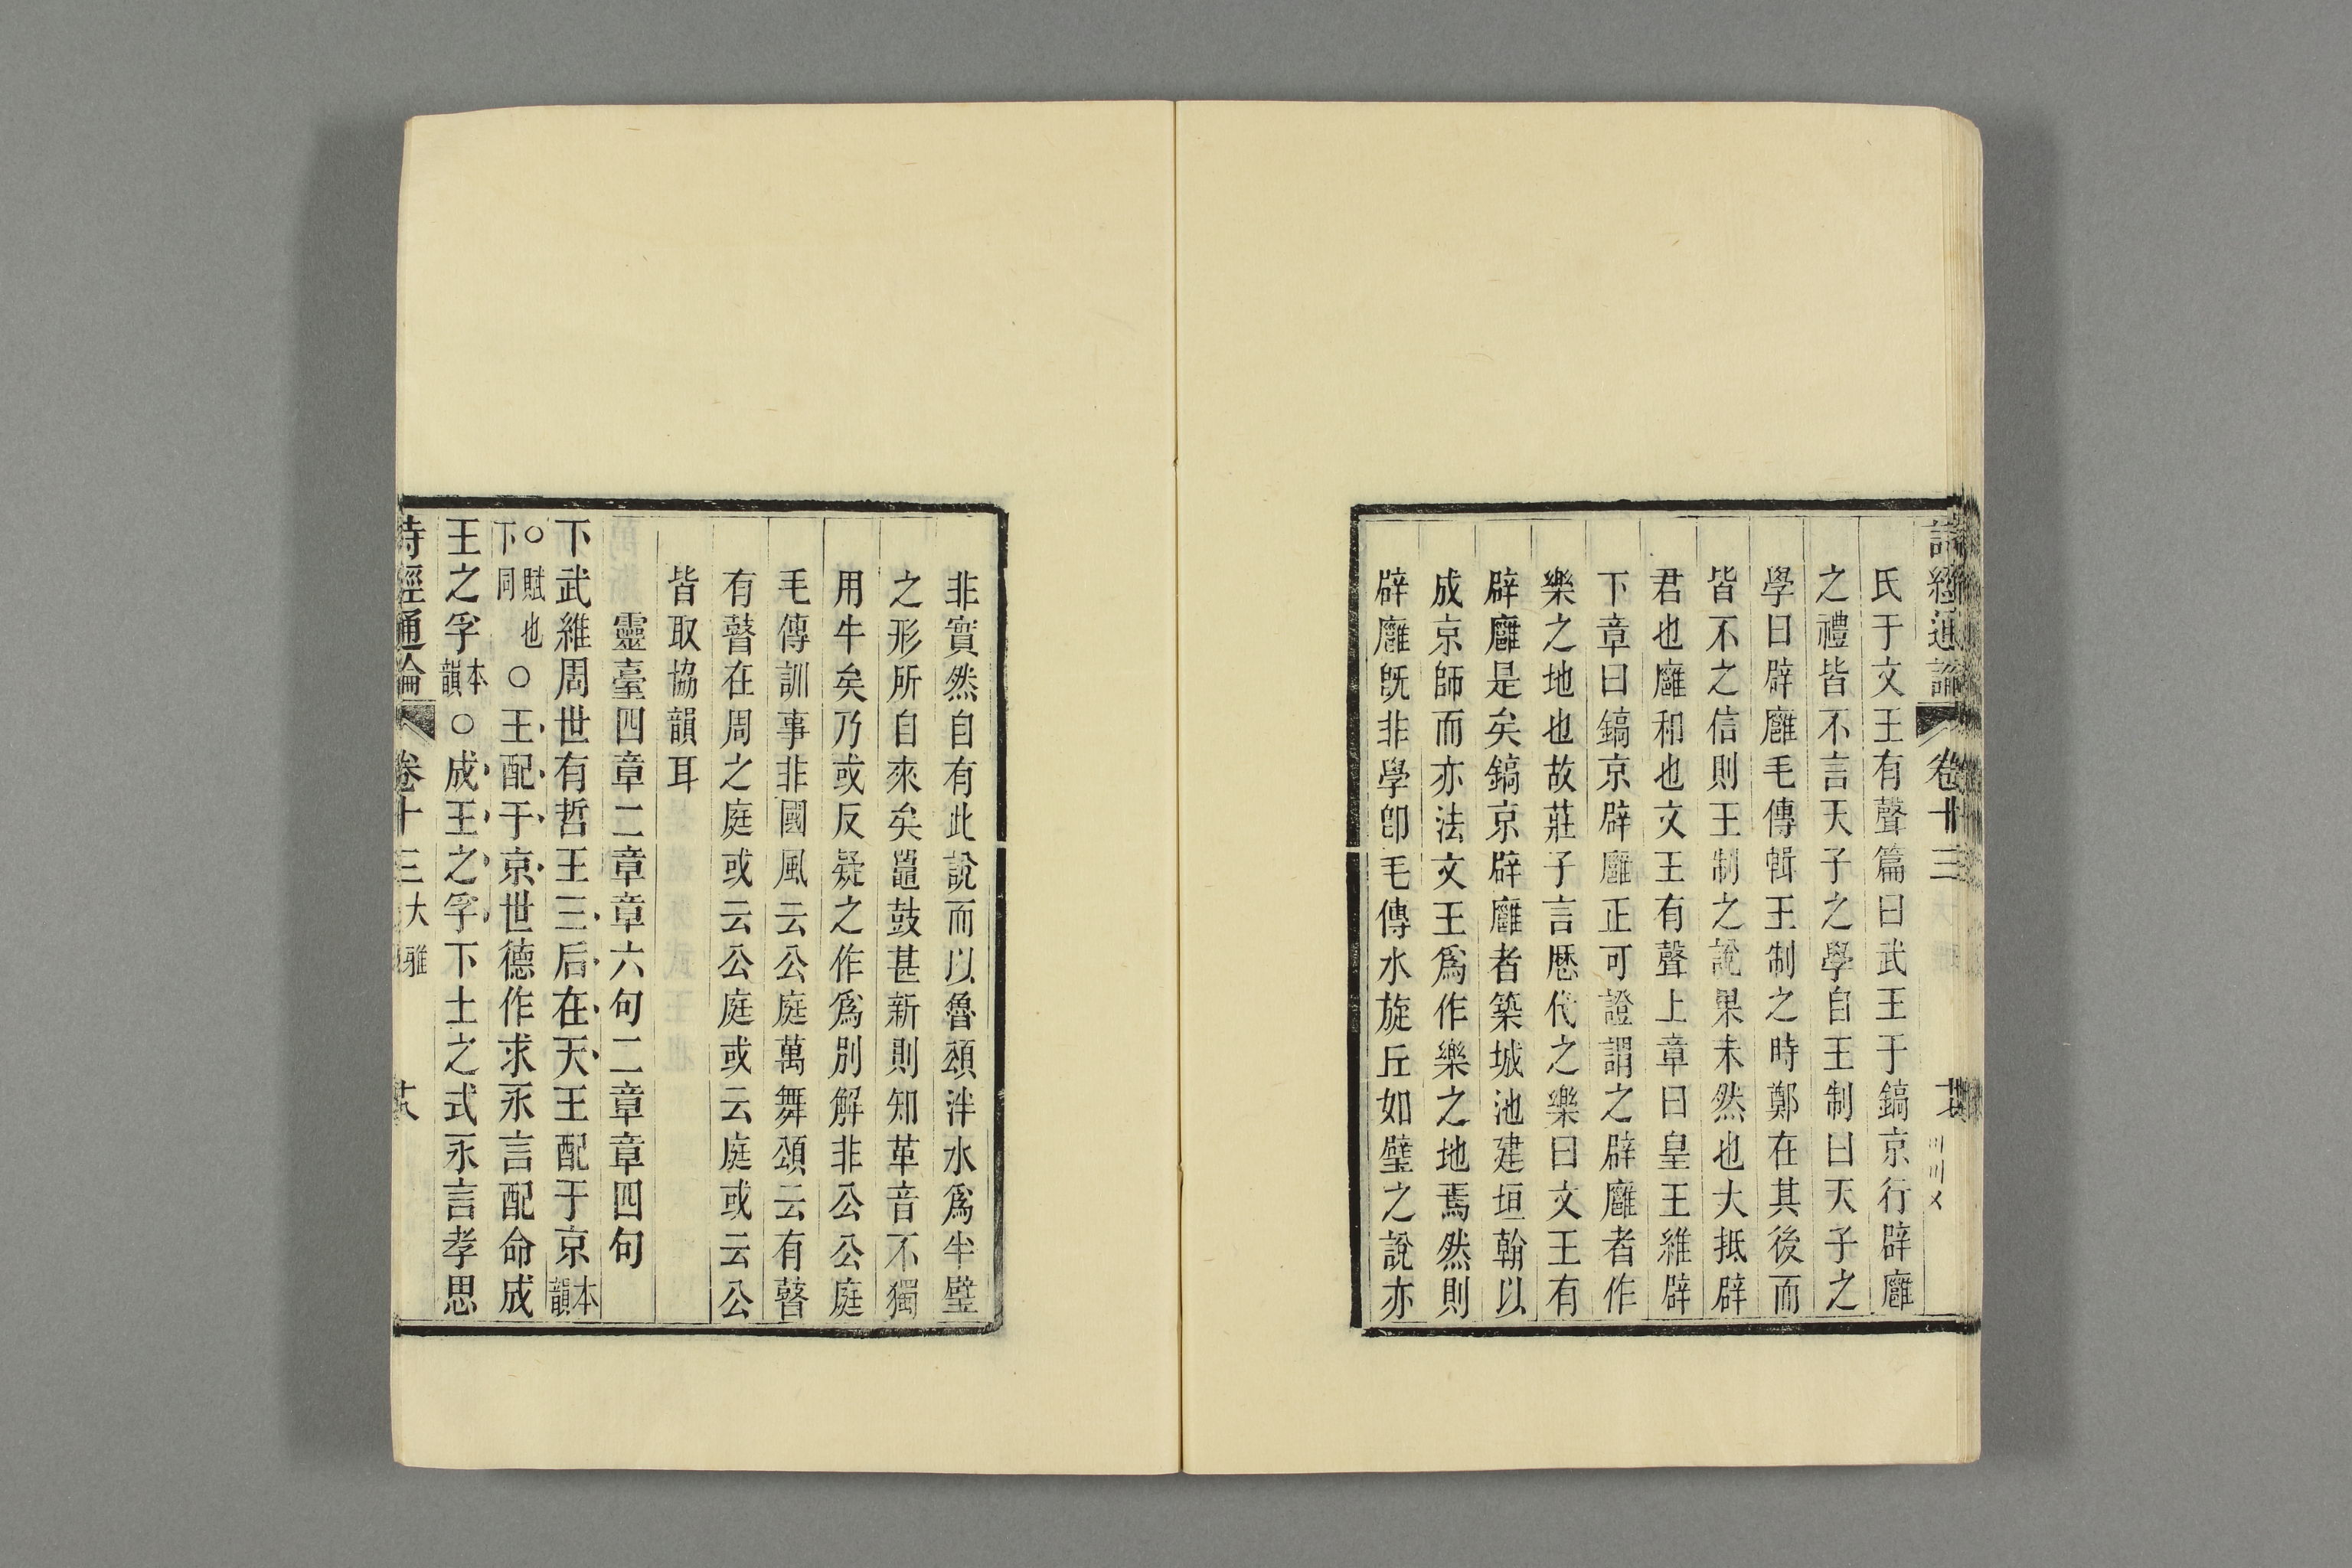 詩經通論 卷十三
氏于文王有聲篇曰武王于鎬京行辟廱
之禮皆不言天子之學自王制曰天子之
學曰辟廱毛傳輯王制之時鄭在其後而
皆不之信則王制之說果未然也大抵辟
君也廱和也文王有聲上章曰皇王維辟
下章曰鎬京辟廱正可證謂之辟廱者作
樂之地也故莊子言歷代之樂曰文王有
辟廱是矣鎬京辟廱者築城池建垣翰以
成京師而亦法文王爲作樂之地焉然則
辟廱旣非學卽毛傳水旋丘如璧之說亦
非實然自有此說而以魯頌泮水爲半璧
之形所自來矣鼉鼓甚新則知革音不獨
用牛矣乃或反疑之作爲別解非公公庭
毛傳訓事非國風云公庭萬舞頌云有瞽
有瞽在周之庭或云公庭或云庭或云公
皆取協韻耳
靈臺四章二章章六句二章章四句
下武維周世有哲王三后在天王配于京本韻
○賦也下同○王配于京世德作求永言配命成
王之孚本韻○成王之孚下土之式永言孝思
詩經通論 卷十三 大雅 廿八